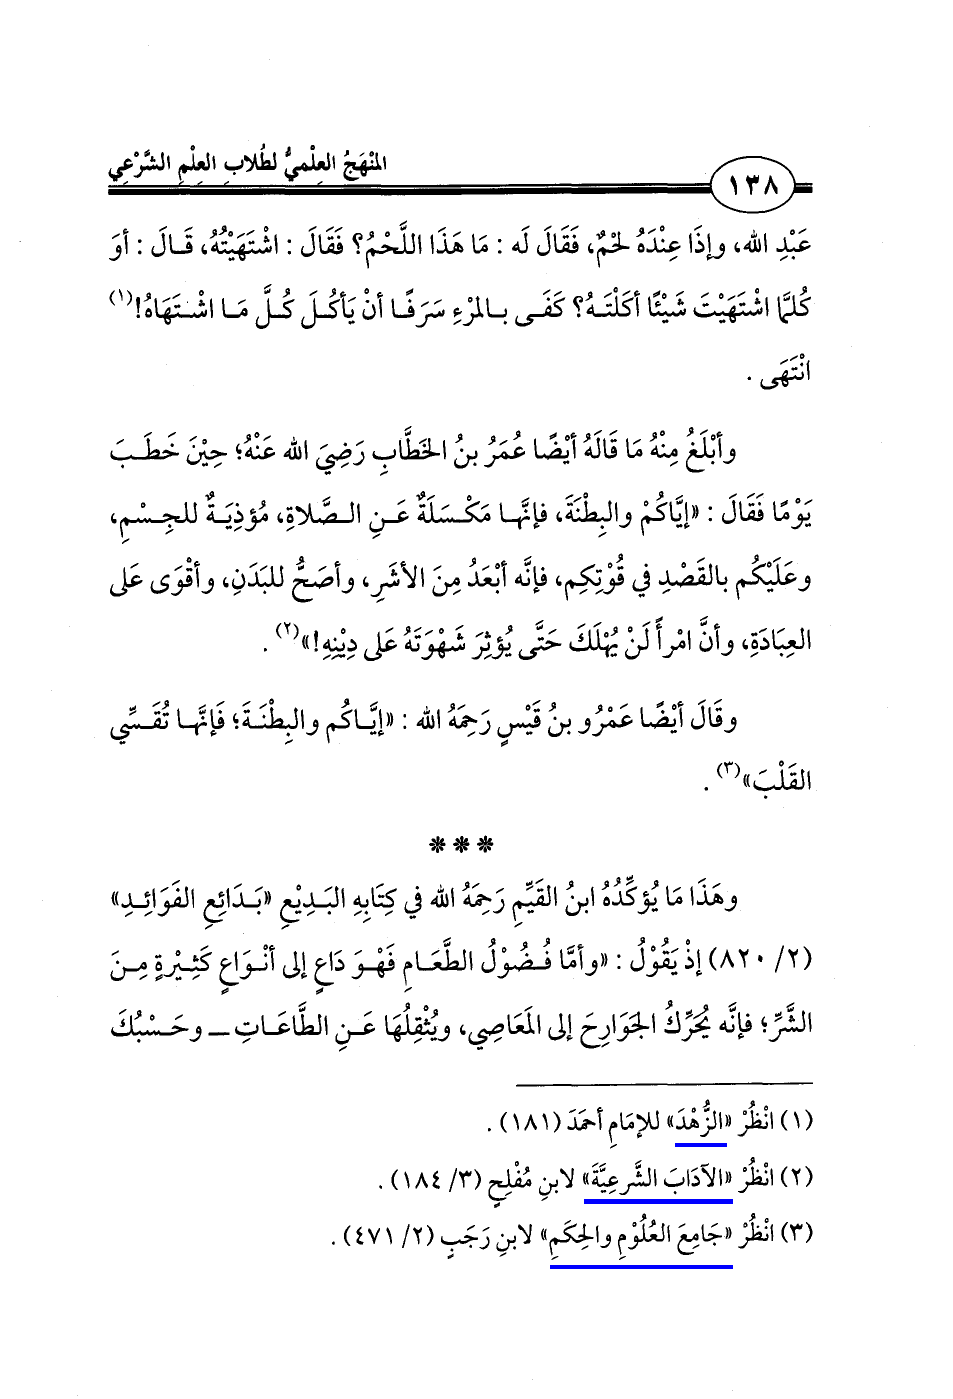 المَنْهَجُ العِلْميُّ لطُلابِ العِلْمِ الشَّرْعِي
١٣٨
عَبْدِ الله، وإذَا عِنْدَهُ لحْمٌ، فَقَالَ لَه : مَا هَذَا اللَّحْمُ؟ فَقَالَ : اشْتَهَيْتُهُ، قَـالَ : أوَ
كُلمَّا اشْتَهَيْتَ شَيْئًا أكَلْتَـهُ؟ كَفَـى بـالمَرْءِ سَرَفًـا أنْ يَأكُـلَ كُـلَّ مَـا اشْـتَهَاهُ!(١)
انْتَهَى .
وأبْلَغُ مِنْهُ مَا قَالَهُ أيْضًا عُمَرُ بنُ الخَطَّابِ رَضِيَ الله عَنْهُ؛ حِيْنَ خَطَـبَ
يَوْمًا فَقَالَ : «إيَّاكُمْ والبِطْنَةَ، فإنَّهـا مَكْـسَلَةٌ عَـنِ الـصَّلاةِ، مُؤذِيَـةٌ للجِـسْمِ،
وعَلَيْكُم بالقَصْدِ في قُوْتِكِم، فإنَّه أبْعَدُ مِنَ الأشَرِ، وأصَحُّ للبَدَنِ، وأقْوَى عَلى
العِبَادَةِ، وأنَّ امْرأً لَنْ يُهْلَكَ حَتَّى يُؤثِرَ شَهْوَتَهُ عَلى دِيْنِهِ!»(٢) .
وقَالَ أيْضًا عَمْرُو بنُ قَيْسٍ رَحِمَهُ الله : «إيَّـاكُم والبِطْنَـةَ؛ فَإنَّهـا تُقَـسِّي
القَلْبَ»(٣) .
***
وهَذَا مَا يُؤكِّدُهُ ابنُ القَيِّمِ رَحِمَهُ الله في كِتَابِهِ البَـدِيْعِ «بَـدَائِعِ الفَوَائِـدِ»
(٢/ ٨٢٠) إذْ يَقُوْلُ : «وأمَّا فُـضُوْلُ الطَّعَـامِ فَهْـوَ دَاعٍ إلى أنْـوَاعٍ كَثِيْـرَةٍ مِـنَ
الشَّرِّ؛ فإنَّه يُحَرِّكُ الجَوَارِحَ إلى المَعَاصِي، ويُثْقِلُهَا عَـنِ الطَّاعَـاتِ ــ وحَـسْبُكَ
(١) انْظُرْ «الزُّهْدَ» للإمَامِ أحمَدَ (١٨١) .
(٢) انْظُرْ «الآدَابَ الشَّرعِيَّةَ» لابنِ مُفْلِحٍ (٣/ ١٨٤) .
(٣) انْظُرْ «جَامِعَ العُلُوْمِ والحِكَمِ» لابنِ رَجَبٍ (٢/ ٤٧١) .